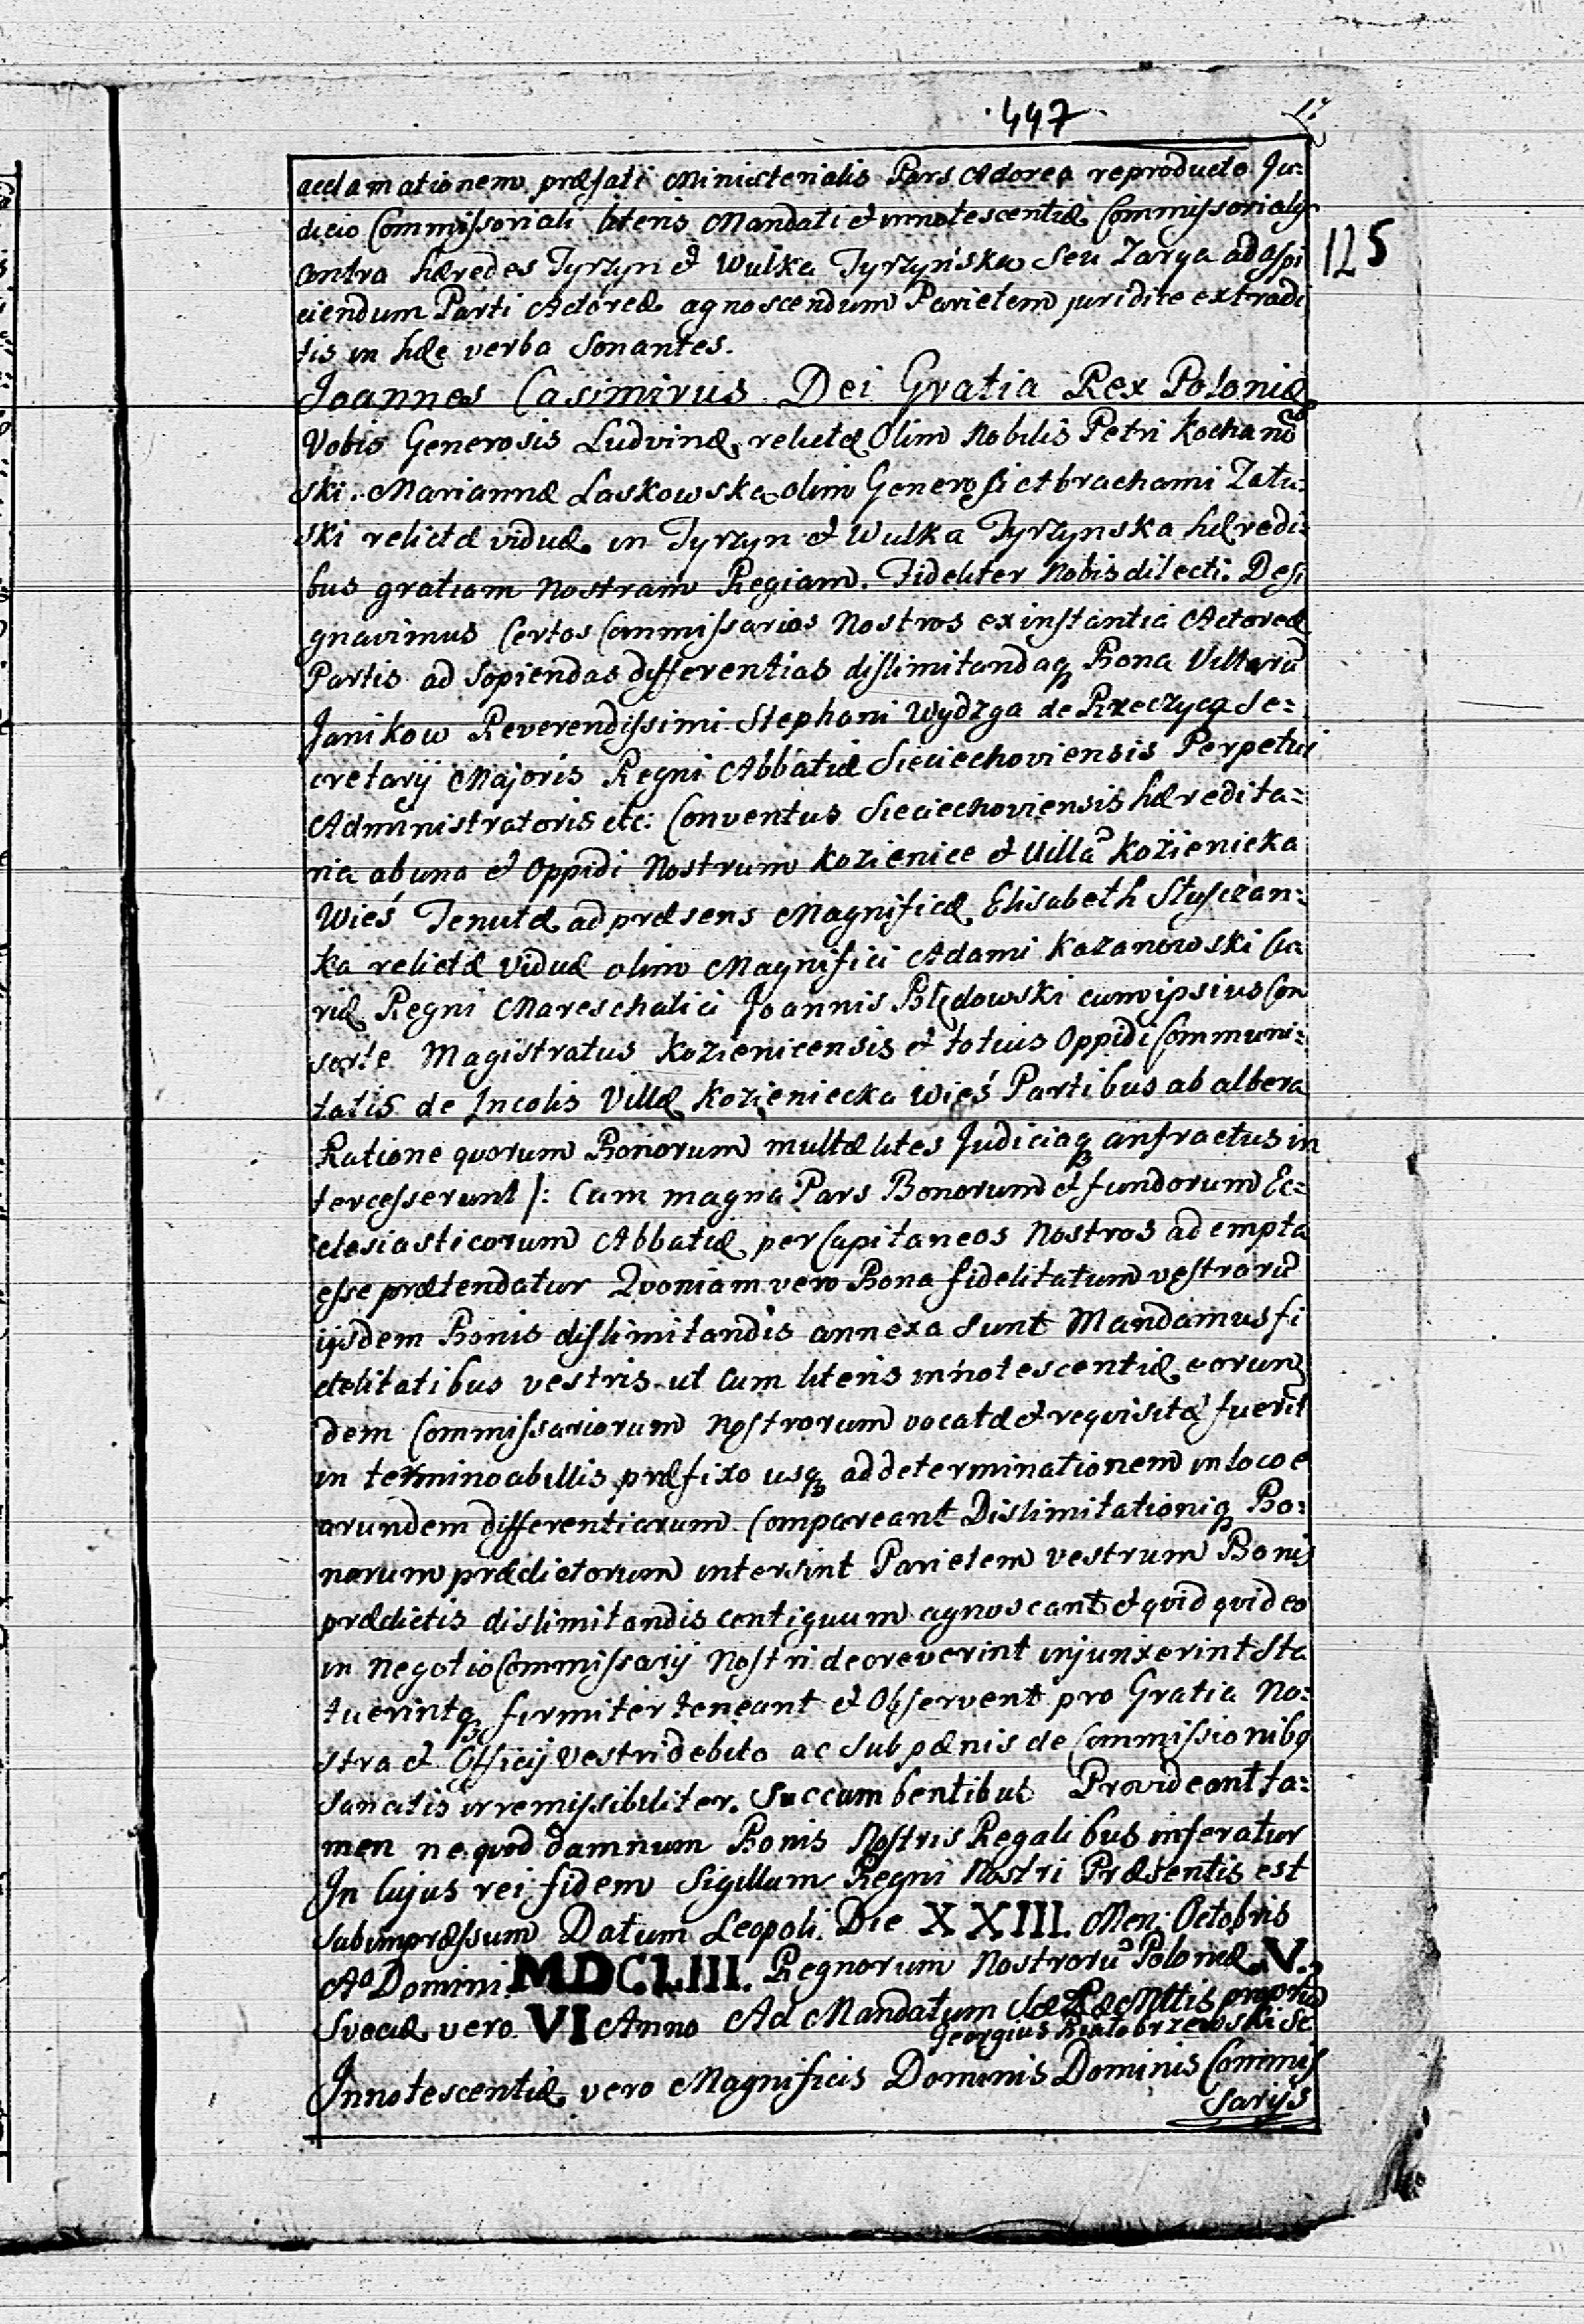 447
125
acclamationem præfati Ministerialis Pars Actorea reproducto Ju:
dicio Commissoriali literis Mandati et innotescentiæ Commissorialis
contra hæredes Tyrzyn et Wulka Tyrzyńska seu Zarga ad aspi
ciendum Parti Actoreæ agnoscendum Parietem juridice extradi
tis in hæc verba sonantes.
Joannes Casimirus Dei Gratia Rex Poloniæ
Vobis Generosis Ludvinæ relictæ Olim Nobilis Petri Kochano
ski. Mariannæ Laskowska olim Generosi Abrachami Zatu:
ski relictæ viduæ in Tyrzyn et Wulka Tyrzynska hæredi:
bus gratiam Nostram Regiam. Fideliter Nobis dilecti. Desi
gnavimus Certos Commissarios Nostros ex instantia Actoreæ
Partis ad sopiendas differentias dislimitandaq Bona Villarũ
Janikow Reverendissimi Stephani Wydzga de Rzeczyca Se:
cretarij Majoris Regni Abbatiæ Sieciechoviensis Perpetui
Administratoris etc: Conventus Sieciechoviensis hæredita:
ria ab una et Oppidi Nostrum Kozienice et Villa Kozienicka
Wieś Tenutæ ad præsens Magnificæ Elisabeth Słuszczan:
ka relictæ viduæ olim Magnifici Adami Kazanowski Cu
riæ Regni Mareschalici Joannis Błędowski cum ipsius Con
sorte Magistratus Kozienicensis et totius Oppidi Communi:
tatis de Incolis Villæ Kozieniecka Wieś Partibus ab altera
Ratione quorum Bonorum multæ lites Judiciaq anfractus in
tercesserunt /: Cum magna Pars Bonorum et fundorum Ec:
clesiasticorum Abbatiæ per Capitaneos Nostros adempta
esse prætendatur Quoniam vero Bona fidelitatum vestrarũ
ijsdem Bonis dislimitandis annexa sunt Mandamus fi
delitatibus vestris ut cum literis innotescentiæ eorun
dem Commissariorum Nostrorum vocatæ et requisitæ fuerit
in termino ab illis præfixo usq ad determinationem in loco e
arundem differentiarum. Compareant Dislimitationiq Bo:
norum prædictorum intersint Parietem vestrum Bonis
prædictis dislimitandis contiguum agnoscant et quid quid eo
in negotio Commissarij Nostri decreverint injunxerint sta
tuerintq firmiter teneant et Observent pro Gratia No:
stra et Officij vestri debito ac sub pænis de Commissionibq
sancitis irremissibiliter. Succumbentibus Provideant ta:
men ne quod damnum Bonis Nostris Regalibus inferatur
In cujus rei fidem Sigillum Regni Nostri Præsentis est
subimpræssum Datum Leopoli. Die XXIII. Men: Octobris
Aº Domini MDCLIII. Regnorum Nostrorũ Poloniæ V.
Sveciæ vero VI Anno Ad Mandatum Sæ Ræ Mttis proprid
Georgius Białobrzewski Sc
Innotescentiæ vero Magnificis Dominis Dominis Commis
sarijs